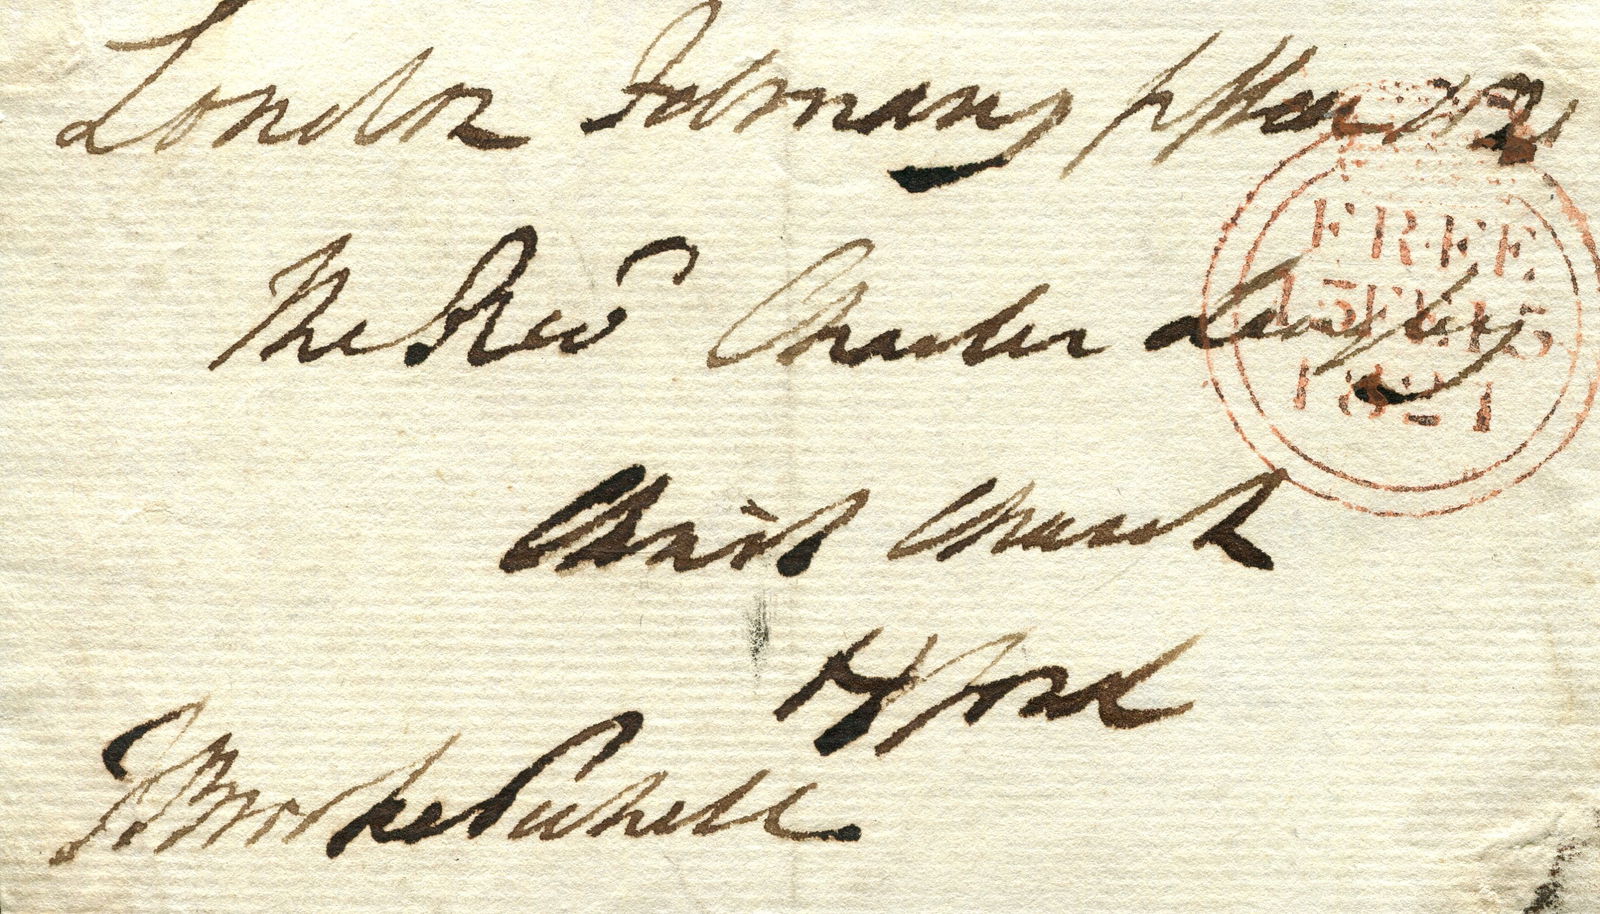 London February fifteen 1821
The Revd Charles Longley
Christ Church
Oxford
T Brooke Pechell
FREE
15 FE 15
1821